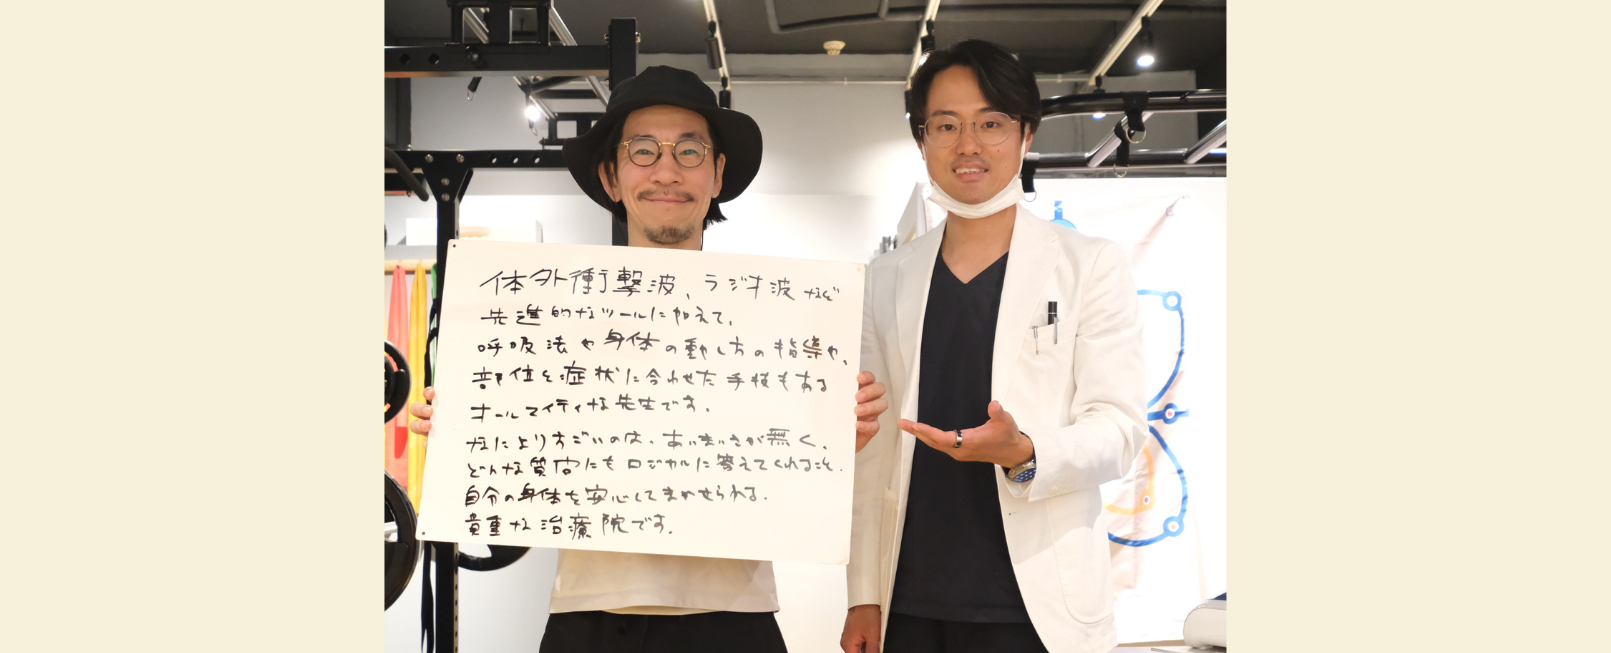 体外衝撃波、ラジオ波など
先進的なツールに加えて、
呼吸法や身体の動かし方の指導や、
部位と症状に合わせた手技もある
オールマイティな先生です。
なによりすごいのは、あいまいさが無く、
どんな質問にもロジカルに答えてくれること。
自分の身体を安心してまかせられる、
貴重な治療院です。